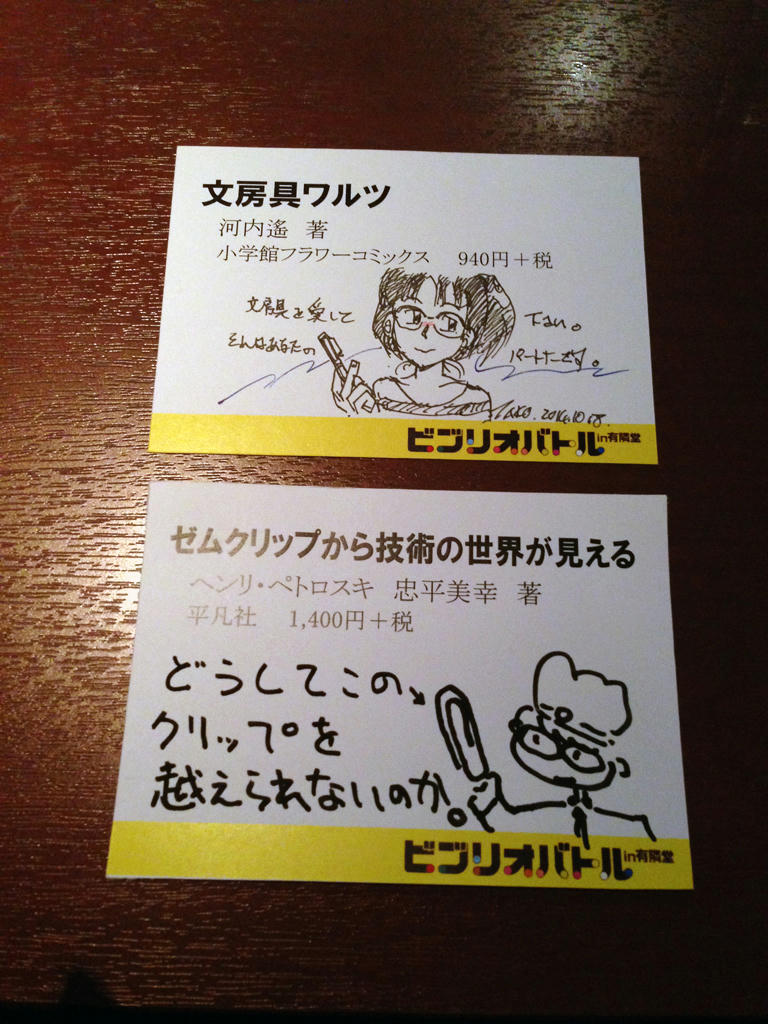 文房具ワルツ
河内遙 著
小学館フラワーコミックス 940円＋税
文房具を愛して
下さい。
そんなあなたの
パートナーです。
2014.10.18.
ビブリオバトル in有隣堂
ゼムクリップから技術の世界が見える
ヘンリ・ペトロスキ 忠平美幸 著
平凡社 1,400円＋税
どうしてこの
クリップを
越えられないのか。
ビブリオバトル in有隣堂